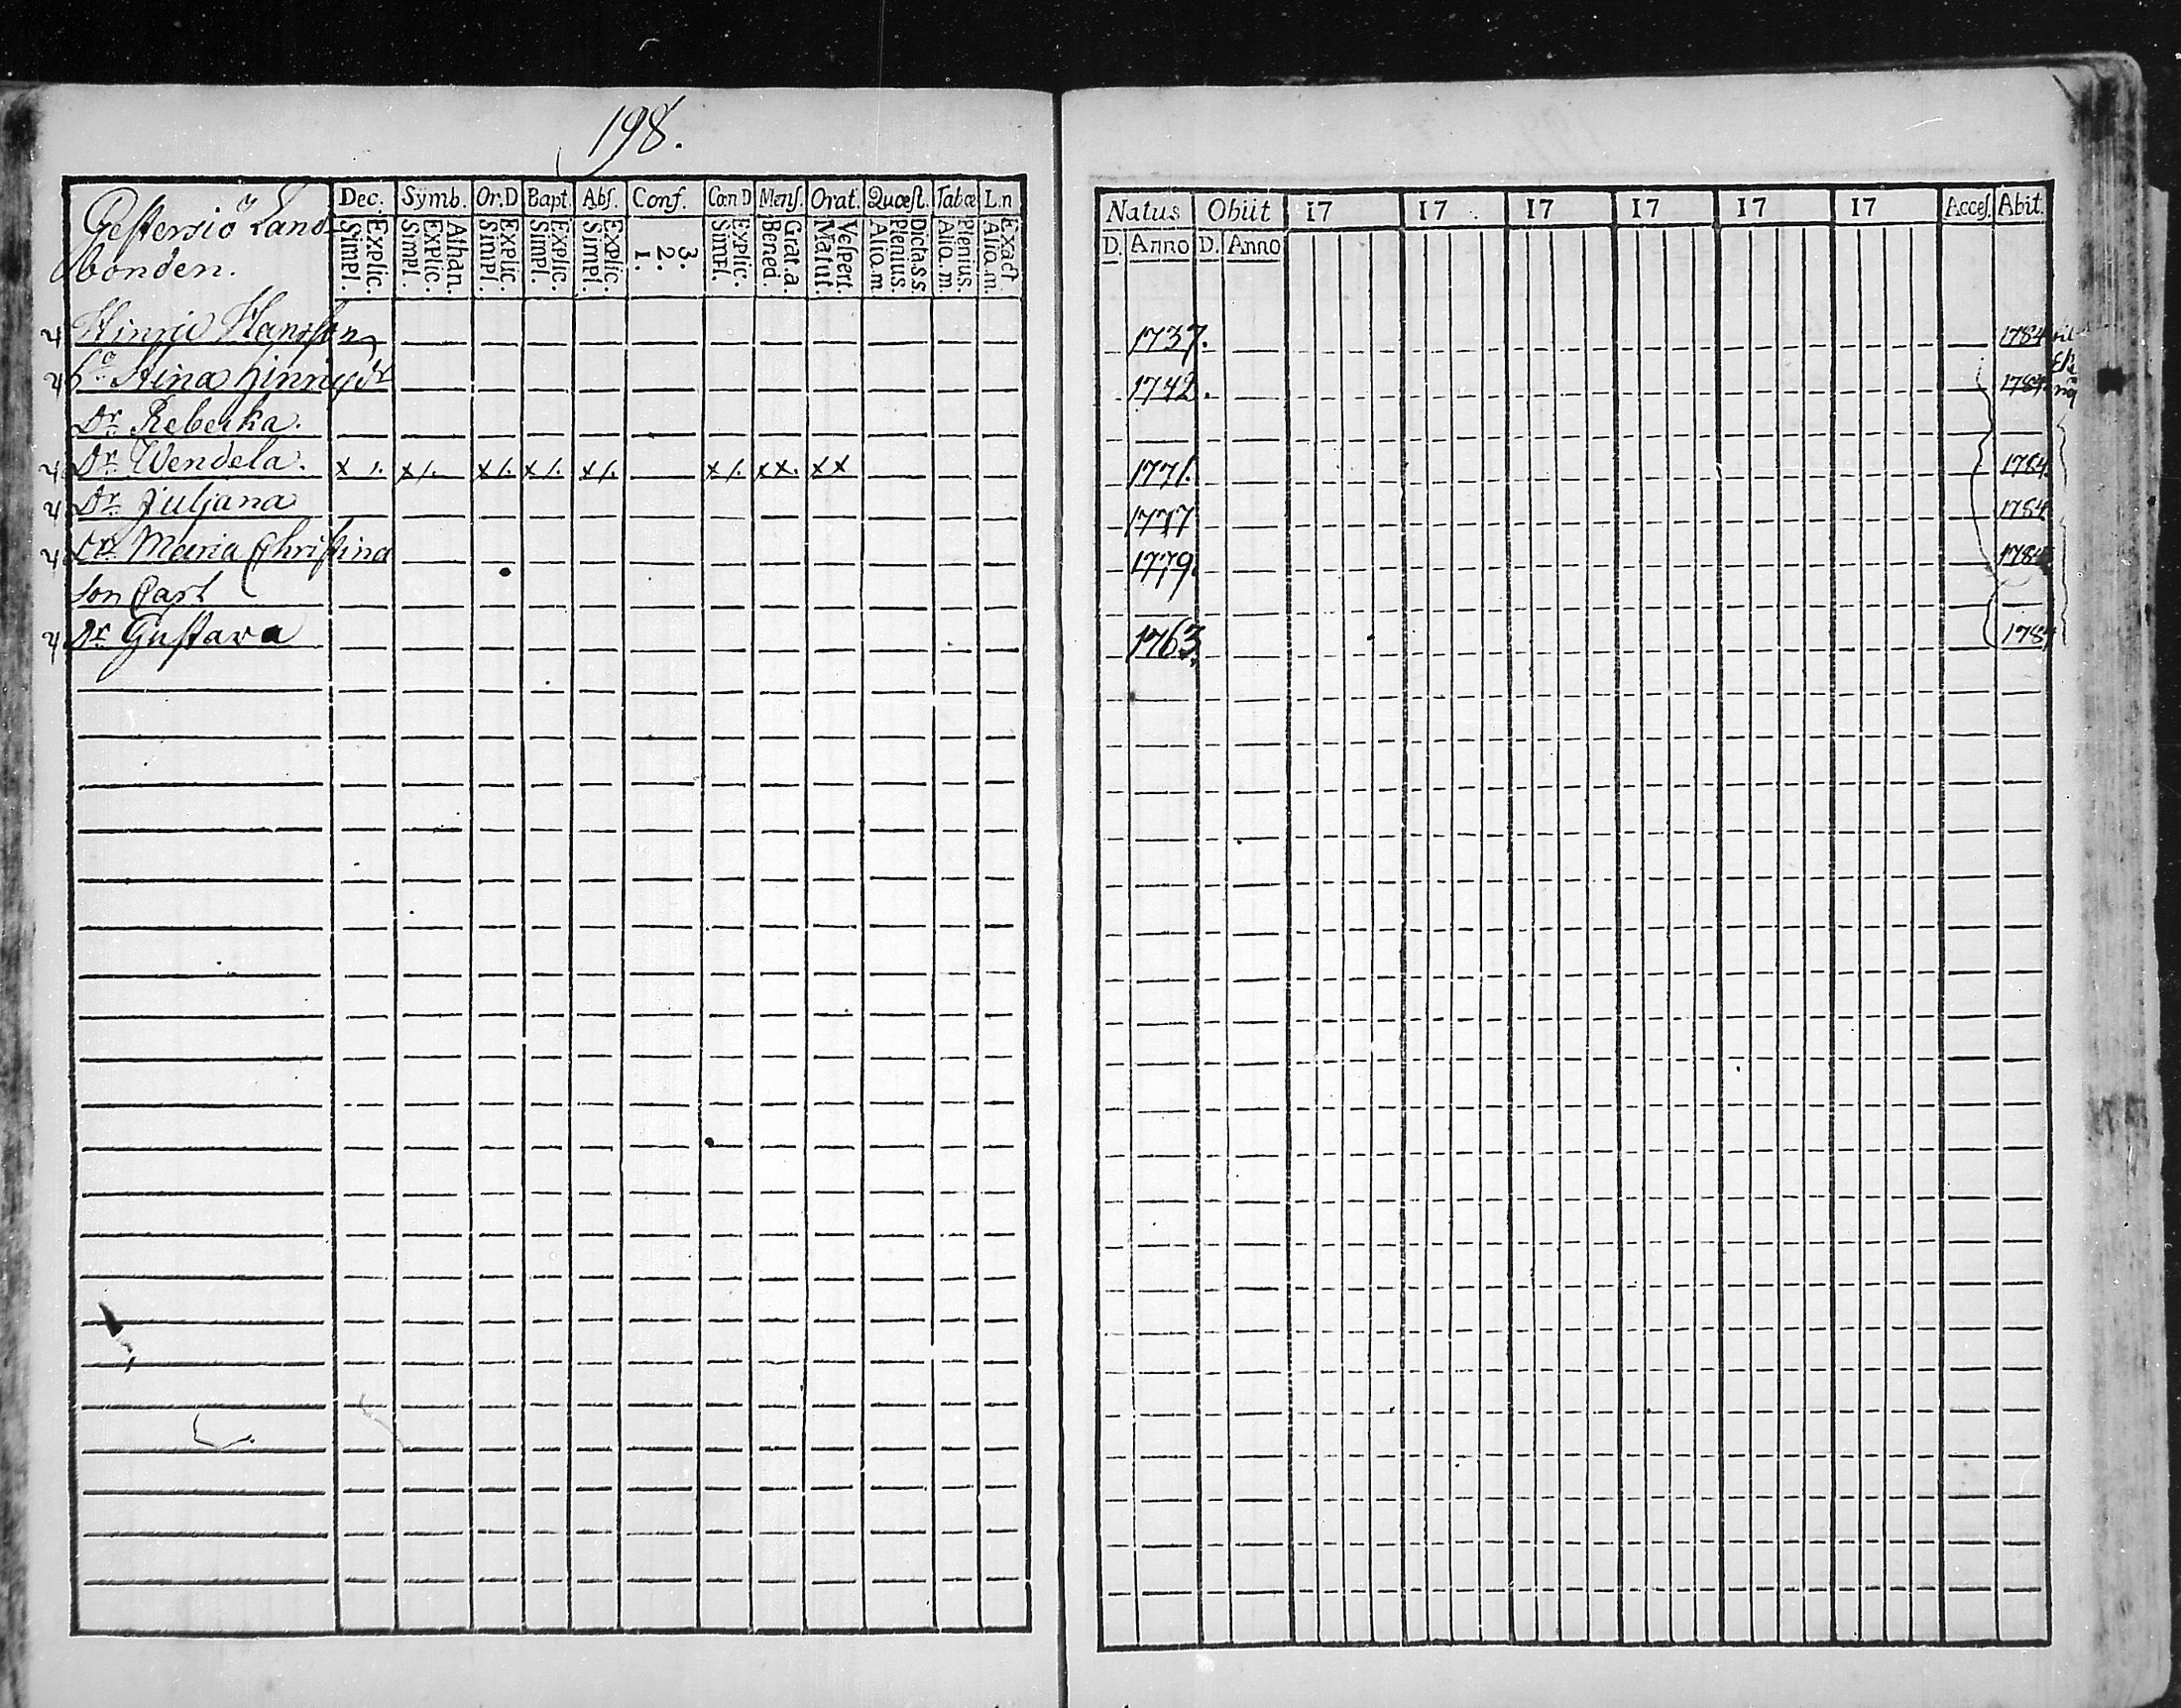 198.
Gestersiö Land-
bonden.
Dec. Symb. Or.D Bapt. Abs. Conf. Cœn D Mens. Orat. Quœst. Tabœ L.n
Simpl. Explic. Simpl. Explic. Athan. Simpl. Explic. Simpl. Explic. Simpl. Explic. 1. 2. 3. Simpl. Explic. Bened. Grat. a. Matut. Vespert. Aliq. m. Plenius. Dicta. s s. Aliq. m. Plenius. Aliq. m. Exact.
Natus Obiit 17 17 17 17 17 17 Acces. Abit.
D. Anno D. Anno
Hinric Hansson 1737. 1784
Stina Hinricsdr 1742. 1784
Dr. Rebecka.
Dr. Wendela. x 1. x 1. x 1. x 1. x 1. x 1. xx. xx 1771. 1784
Dr. Juljana 1777 1784
Dr. Maria Christina 1779. 1784
Son Carl
Dr. Gustava 1763 1784